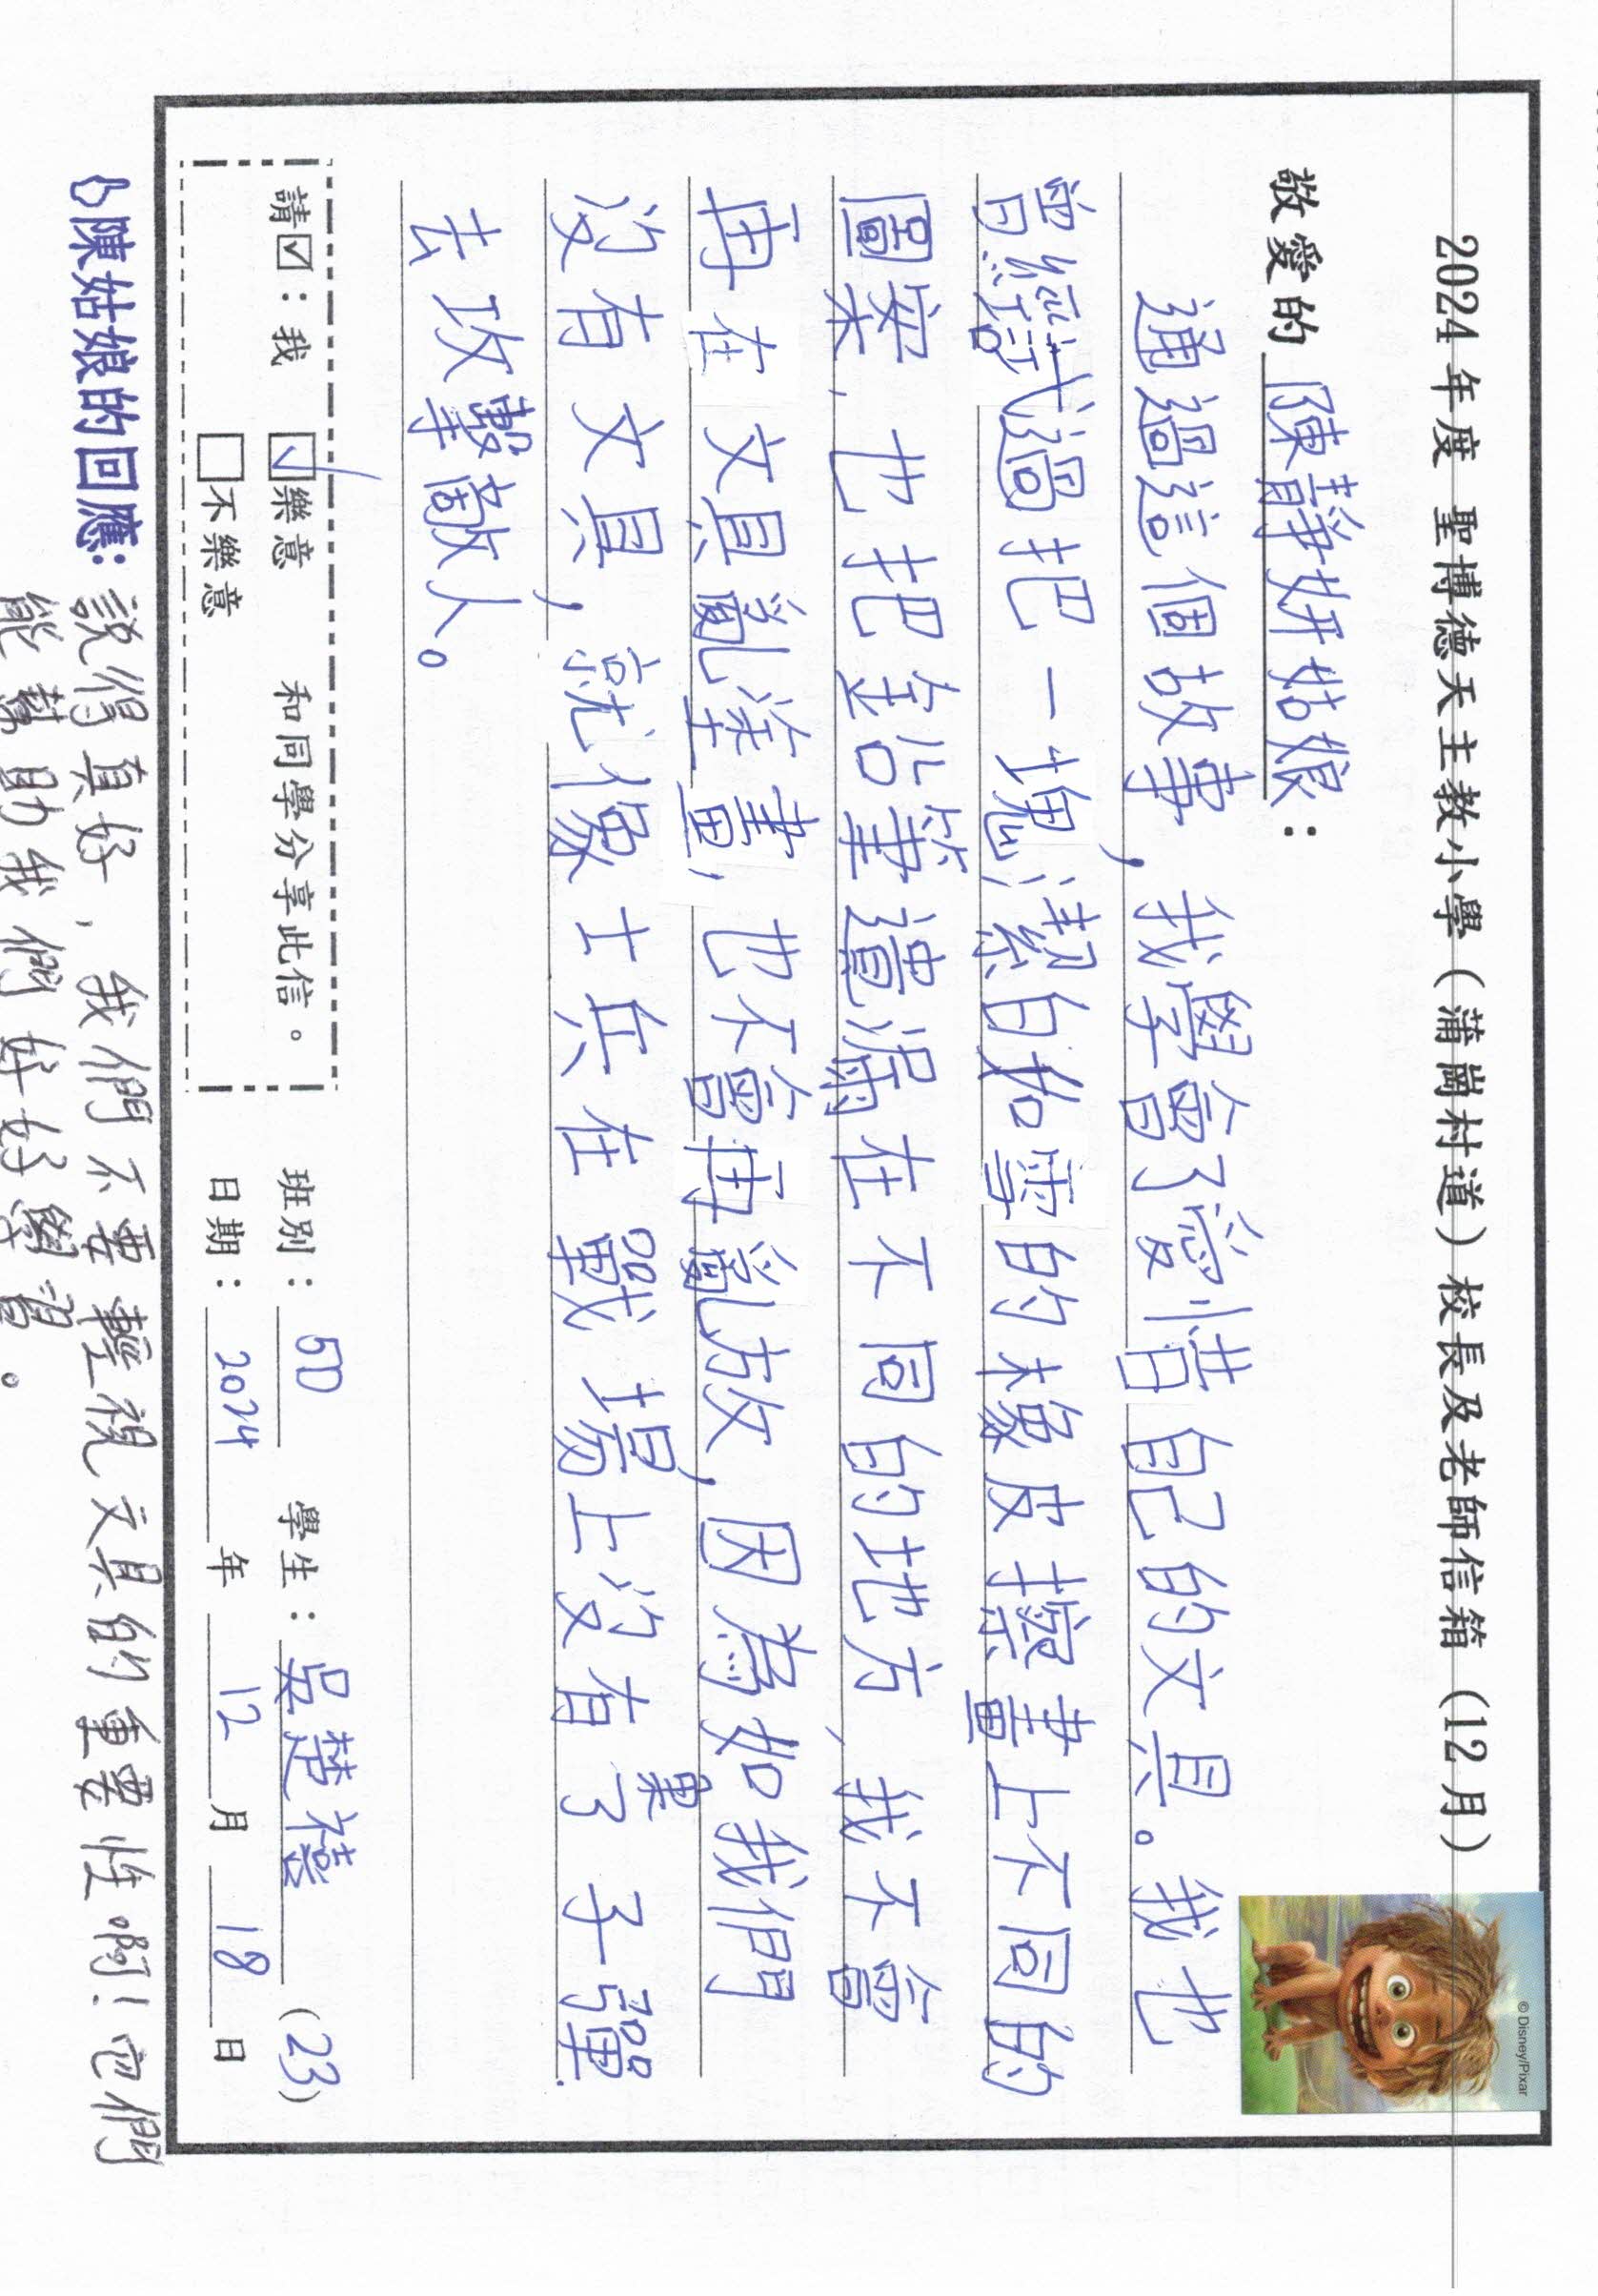 2024 年度 聖博德天主教小學（蒲崗村道）校長及老師信箱（12 月）
© Disney/Pixar
敬愛的 陳靜妍姑娘：
通過這個故事，我學會了愛惜自己的文具。我也
曾經試過把一塊潔白如雪的橡皮擦畫上不同的
圖案，也把鉛筆遺漏在不同的地方，我不會
再在文具亂塗畫，也不會再亂放，因為如我們
沒有文具，就像士兵在戰場上沒有了子彈
去攻擊敵人。
請☑：我 ☑樂意 和同學分享此信。
□不樂意
班別：5D 學生：吳楚禧 (23)
日期：2024 年 12 月 18 日
陳姑娘的回應：說得真好，我們不要輕視文具的重要性啊！它們
能幫助我們好好學習。